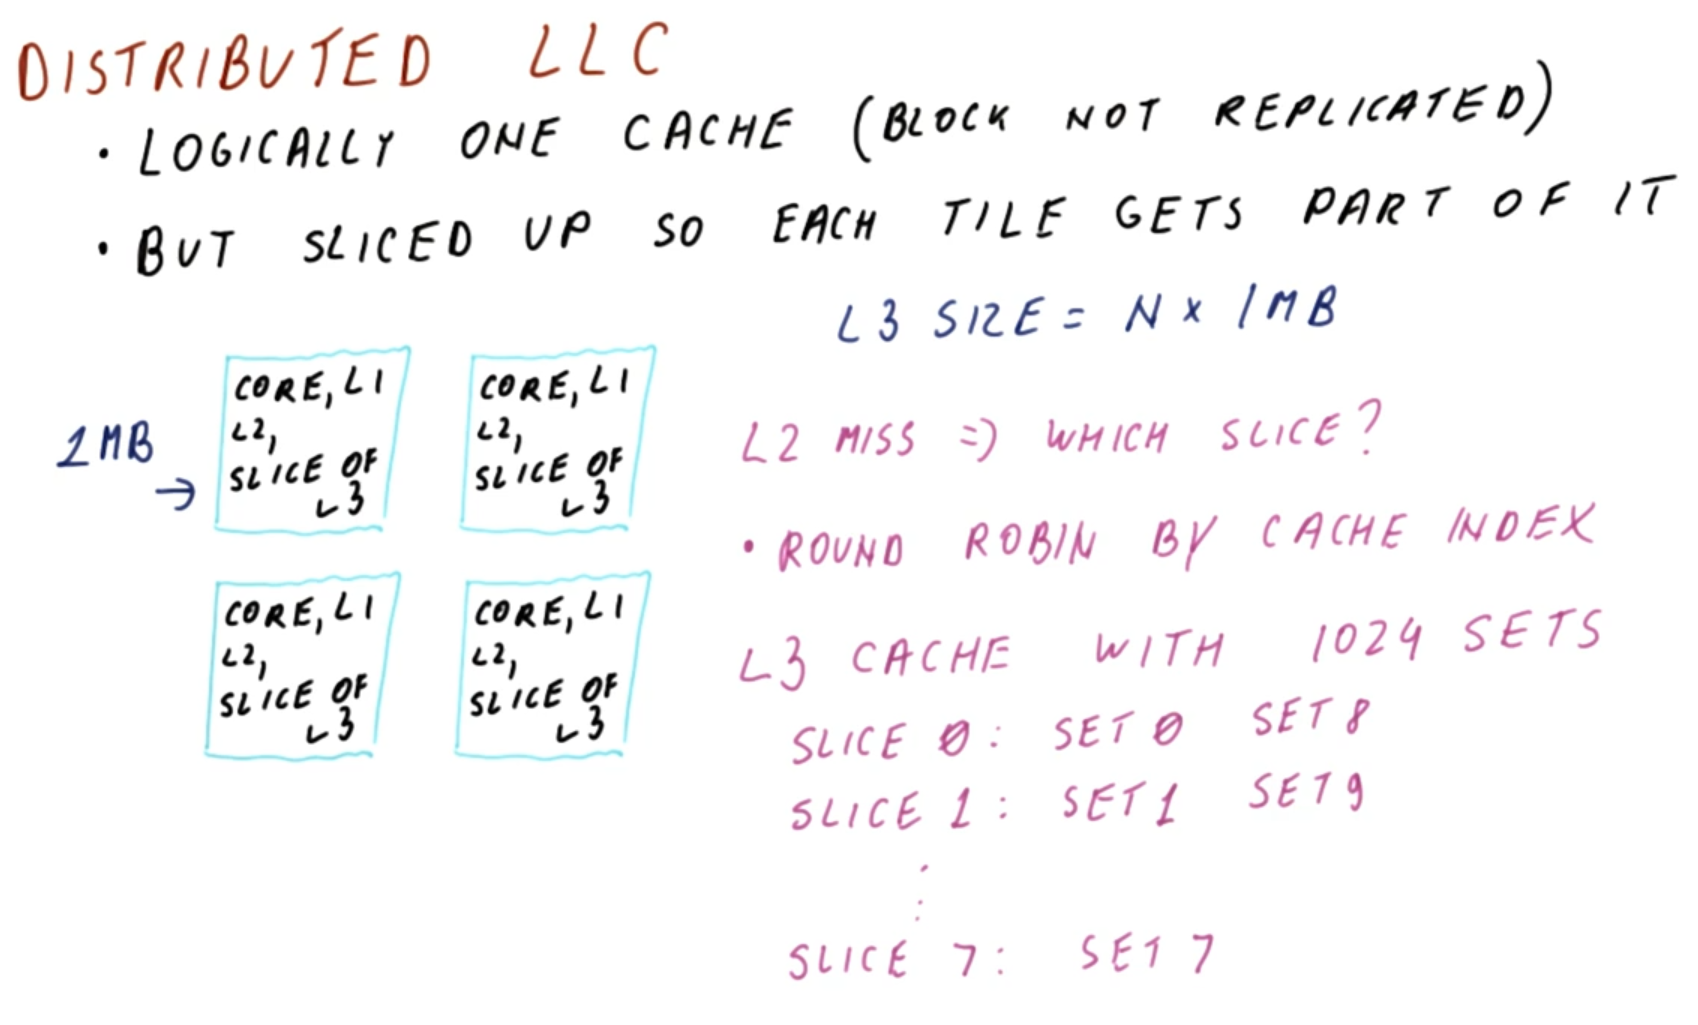 DISTRIBUTED LLC
• LOGICALLY ONE CACHE (BLOCK NOT REPLICATED)
• BUT SLICED UP SO EACH TILE GETS PART OF IT
L3 SIZE = N x 1MB
1MB →
CORE, L1
L2,
SLICE OF
L3
CORE, L1
L2,
SLICE OF
L3
CORE, L1
L2,
SLICE OF
L3
CORE, L1
L2,
SLICE OF
L3
L2 MISS => WHICH SLICE?
• ROUND ROBIN BY CACHE INDEX
L3 CACHE WITH 1024 SETS
SLICE 0: SET 0 SET 8
SLICE 1: SET 1 SET 9
⋮
SLICE 7: SET 7